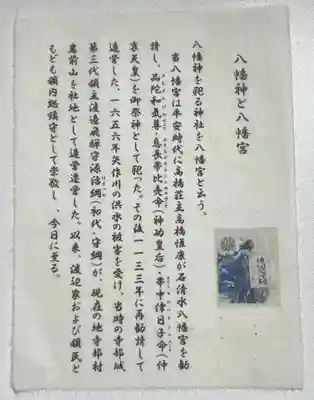 八幡神と八幡宮
八幡神を祀る神社を八幡宮と云う。
当八幡宮は平安時代に高橋荘主高橋惟康が石清水八幡宮を勧
請し、品陀和氣尊・息長帯比売命（神功皇后・帯中津日子命（仲
哀天皇）を御祭神として祀った。その後一一三三年に再勧請して
造営した。一六五六年矢作川の洪水の被害を受け、当時の寺部城
第三代領主渡邉飛騨守源治綱（初代・守綱）が、現在の地寺部村
嵩前山を社地として造営遷営した。以来、渡辺家および領民と
もども領内総鎮守として崇敬し、今日に至る。